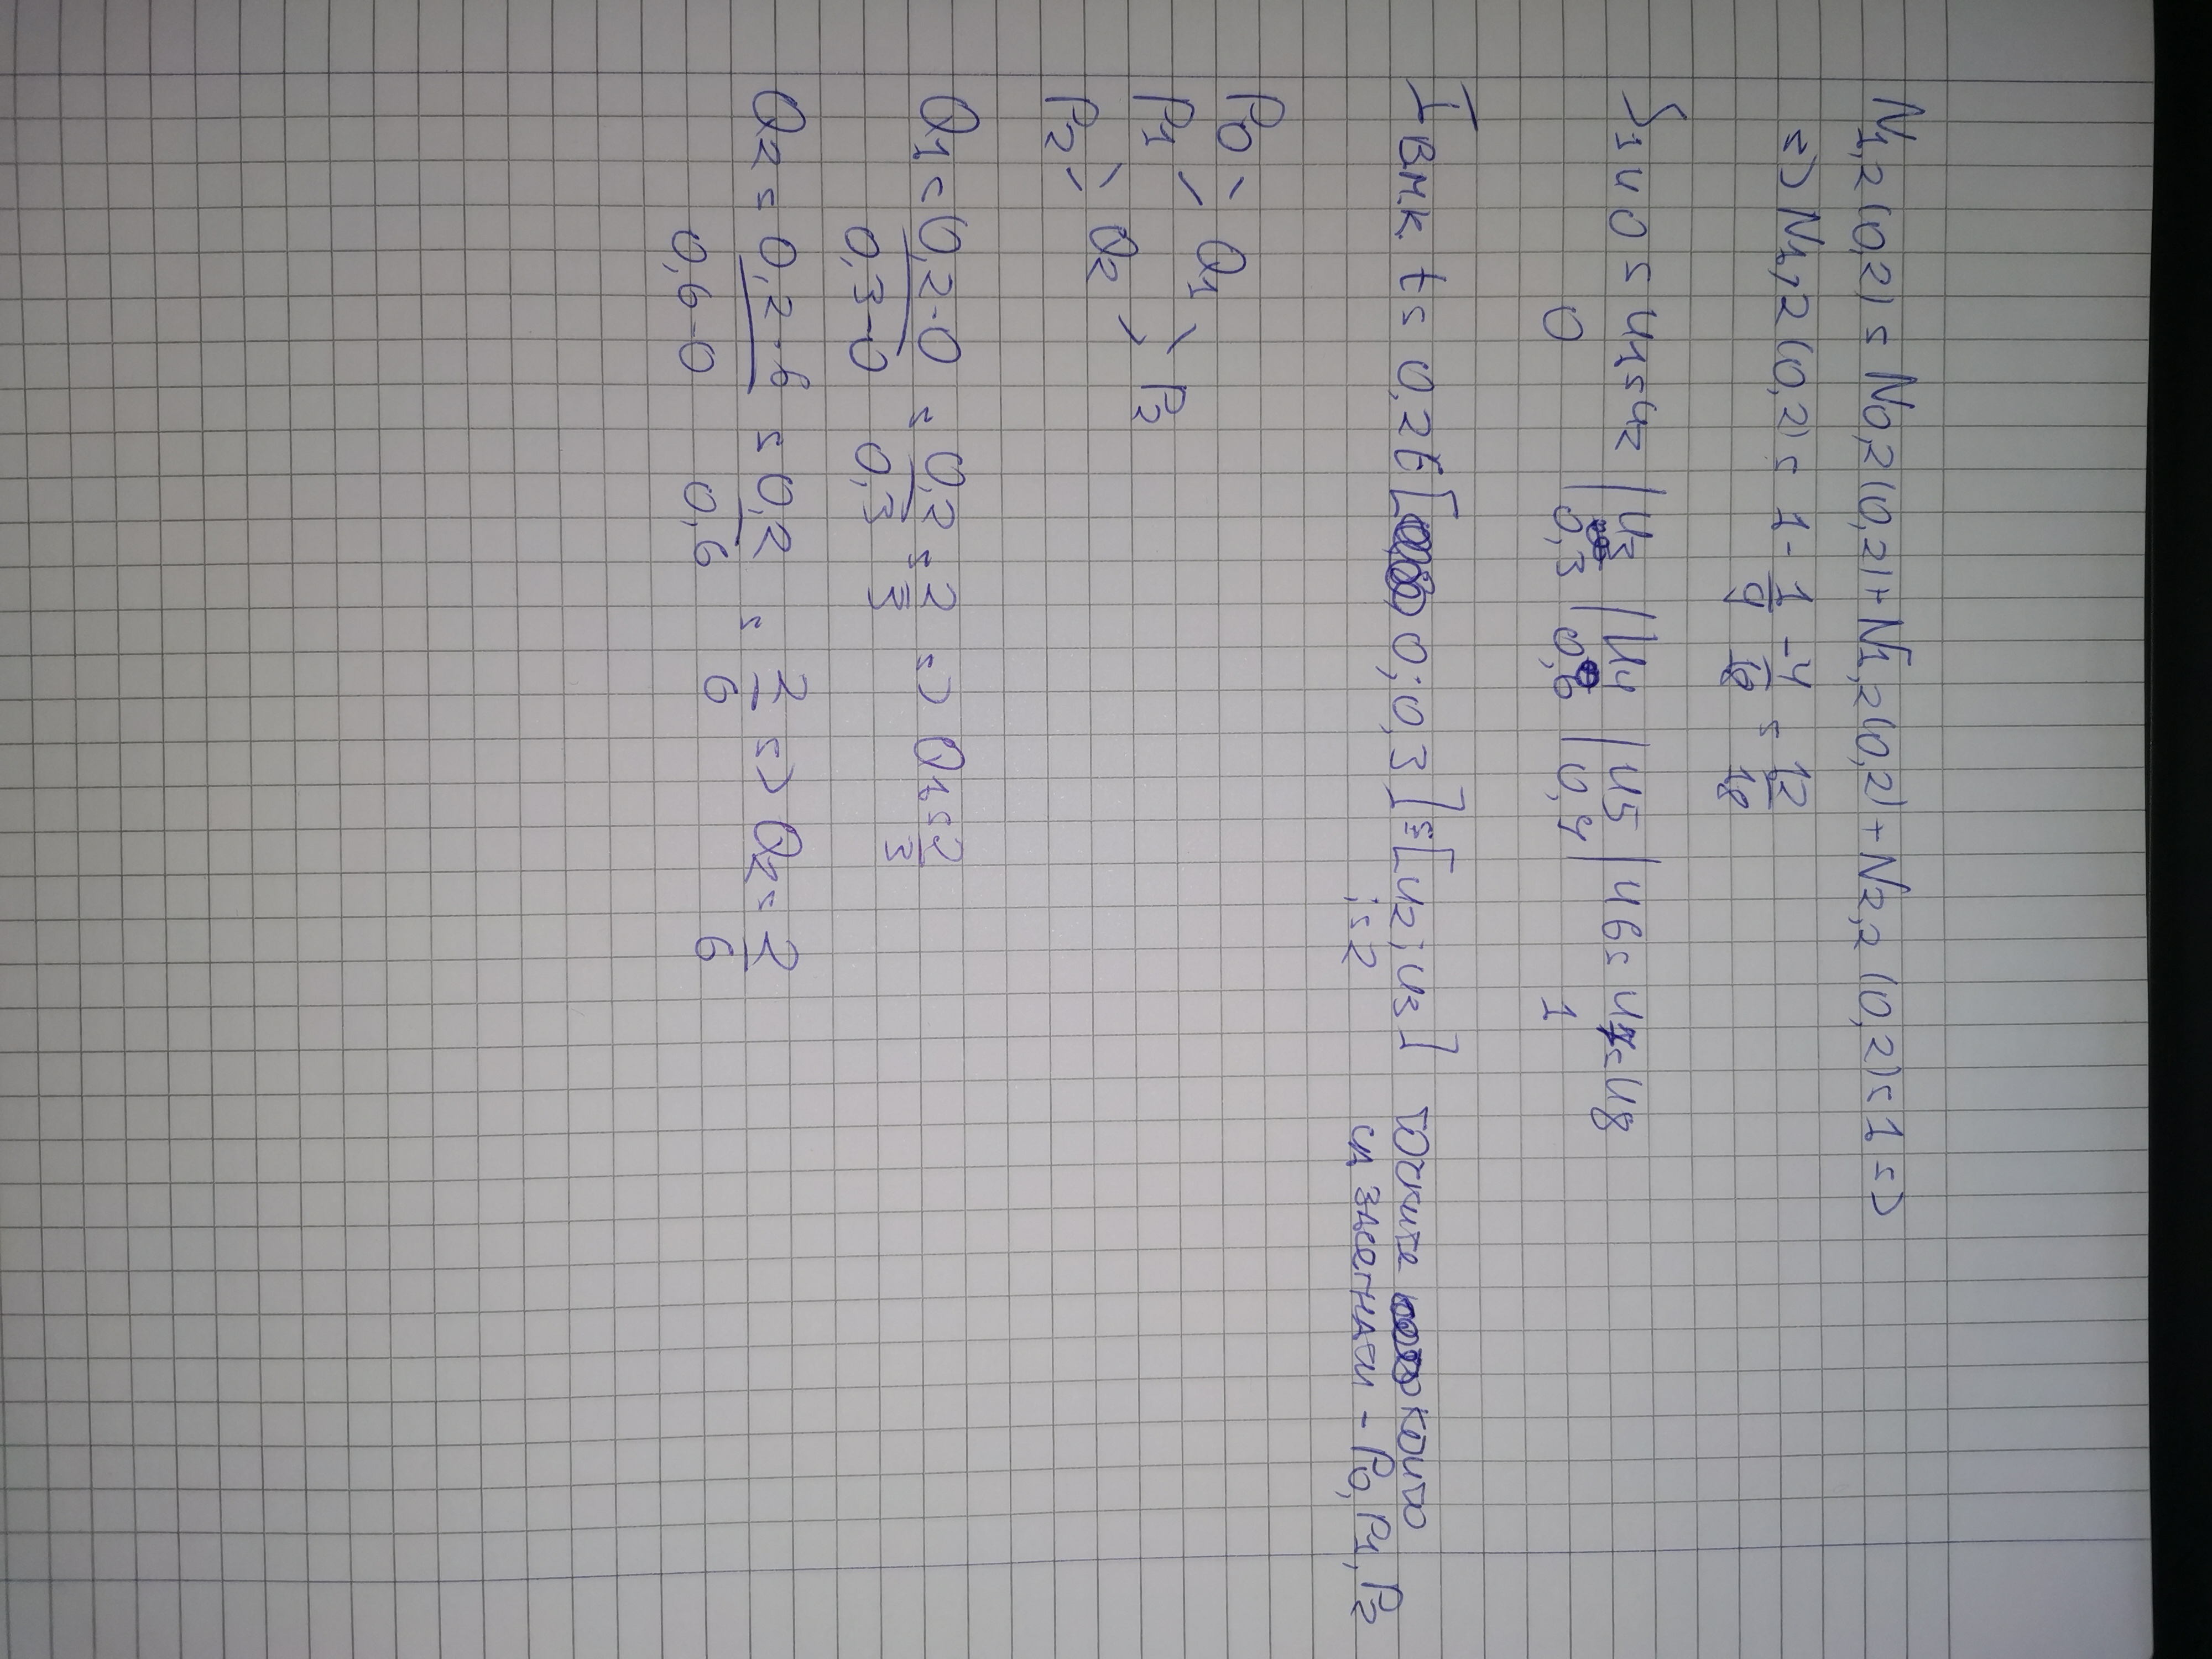 N1,2(0,2) = N0,2(0,2)+N1,2(0,2)+N2,2(0,2)=1 =>
=> N1,2(0,2) = 1 - 1/9 - 4/18 = 12/18
u0 = u1=u2 | u3 | u4 | u5 | u6= u7=u8
0 0,3 0,6 0,9 1
I вмк t= 0,2 ∈ [0;0,3] ≡ [u2;u3] точките които
i=2 са засегнати - P0, P1, P2
P0
Q1
P1 P2
Q2
P2
Q1 = 0,2-0 / 0,3-0 = 0,2/0,3 = 2/3 => Q1 = 2/3
Q2 = 0,2-6 / 0,6-0 = 0,2/0,6 = 2/6 => Q2 = 2/6